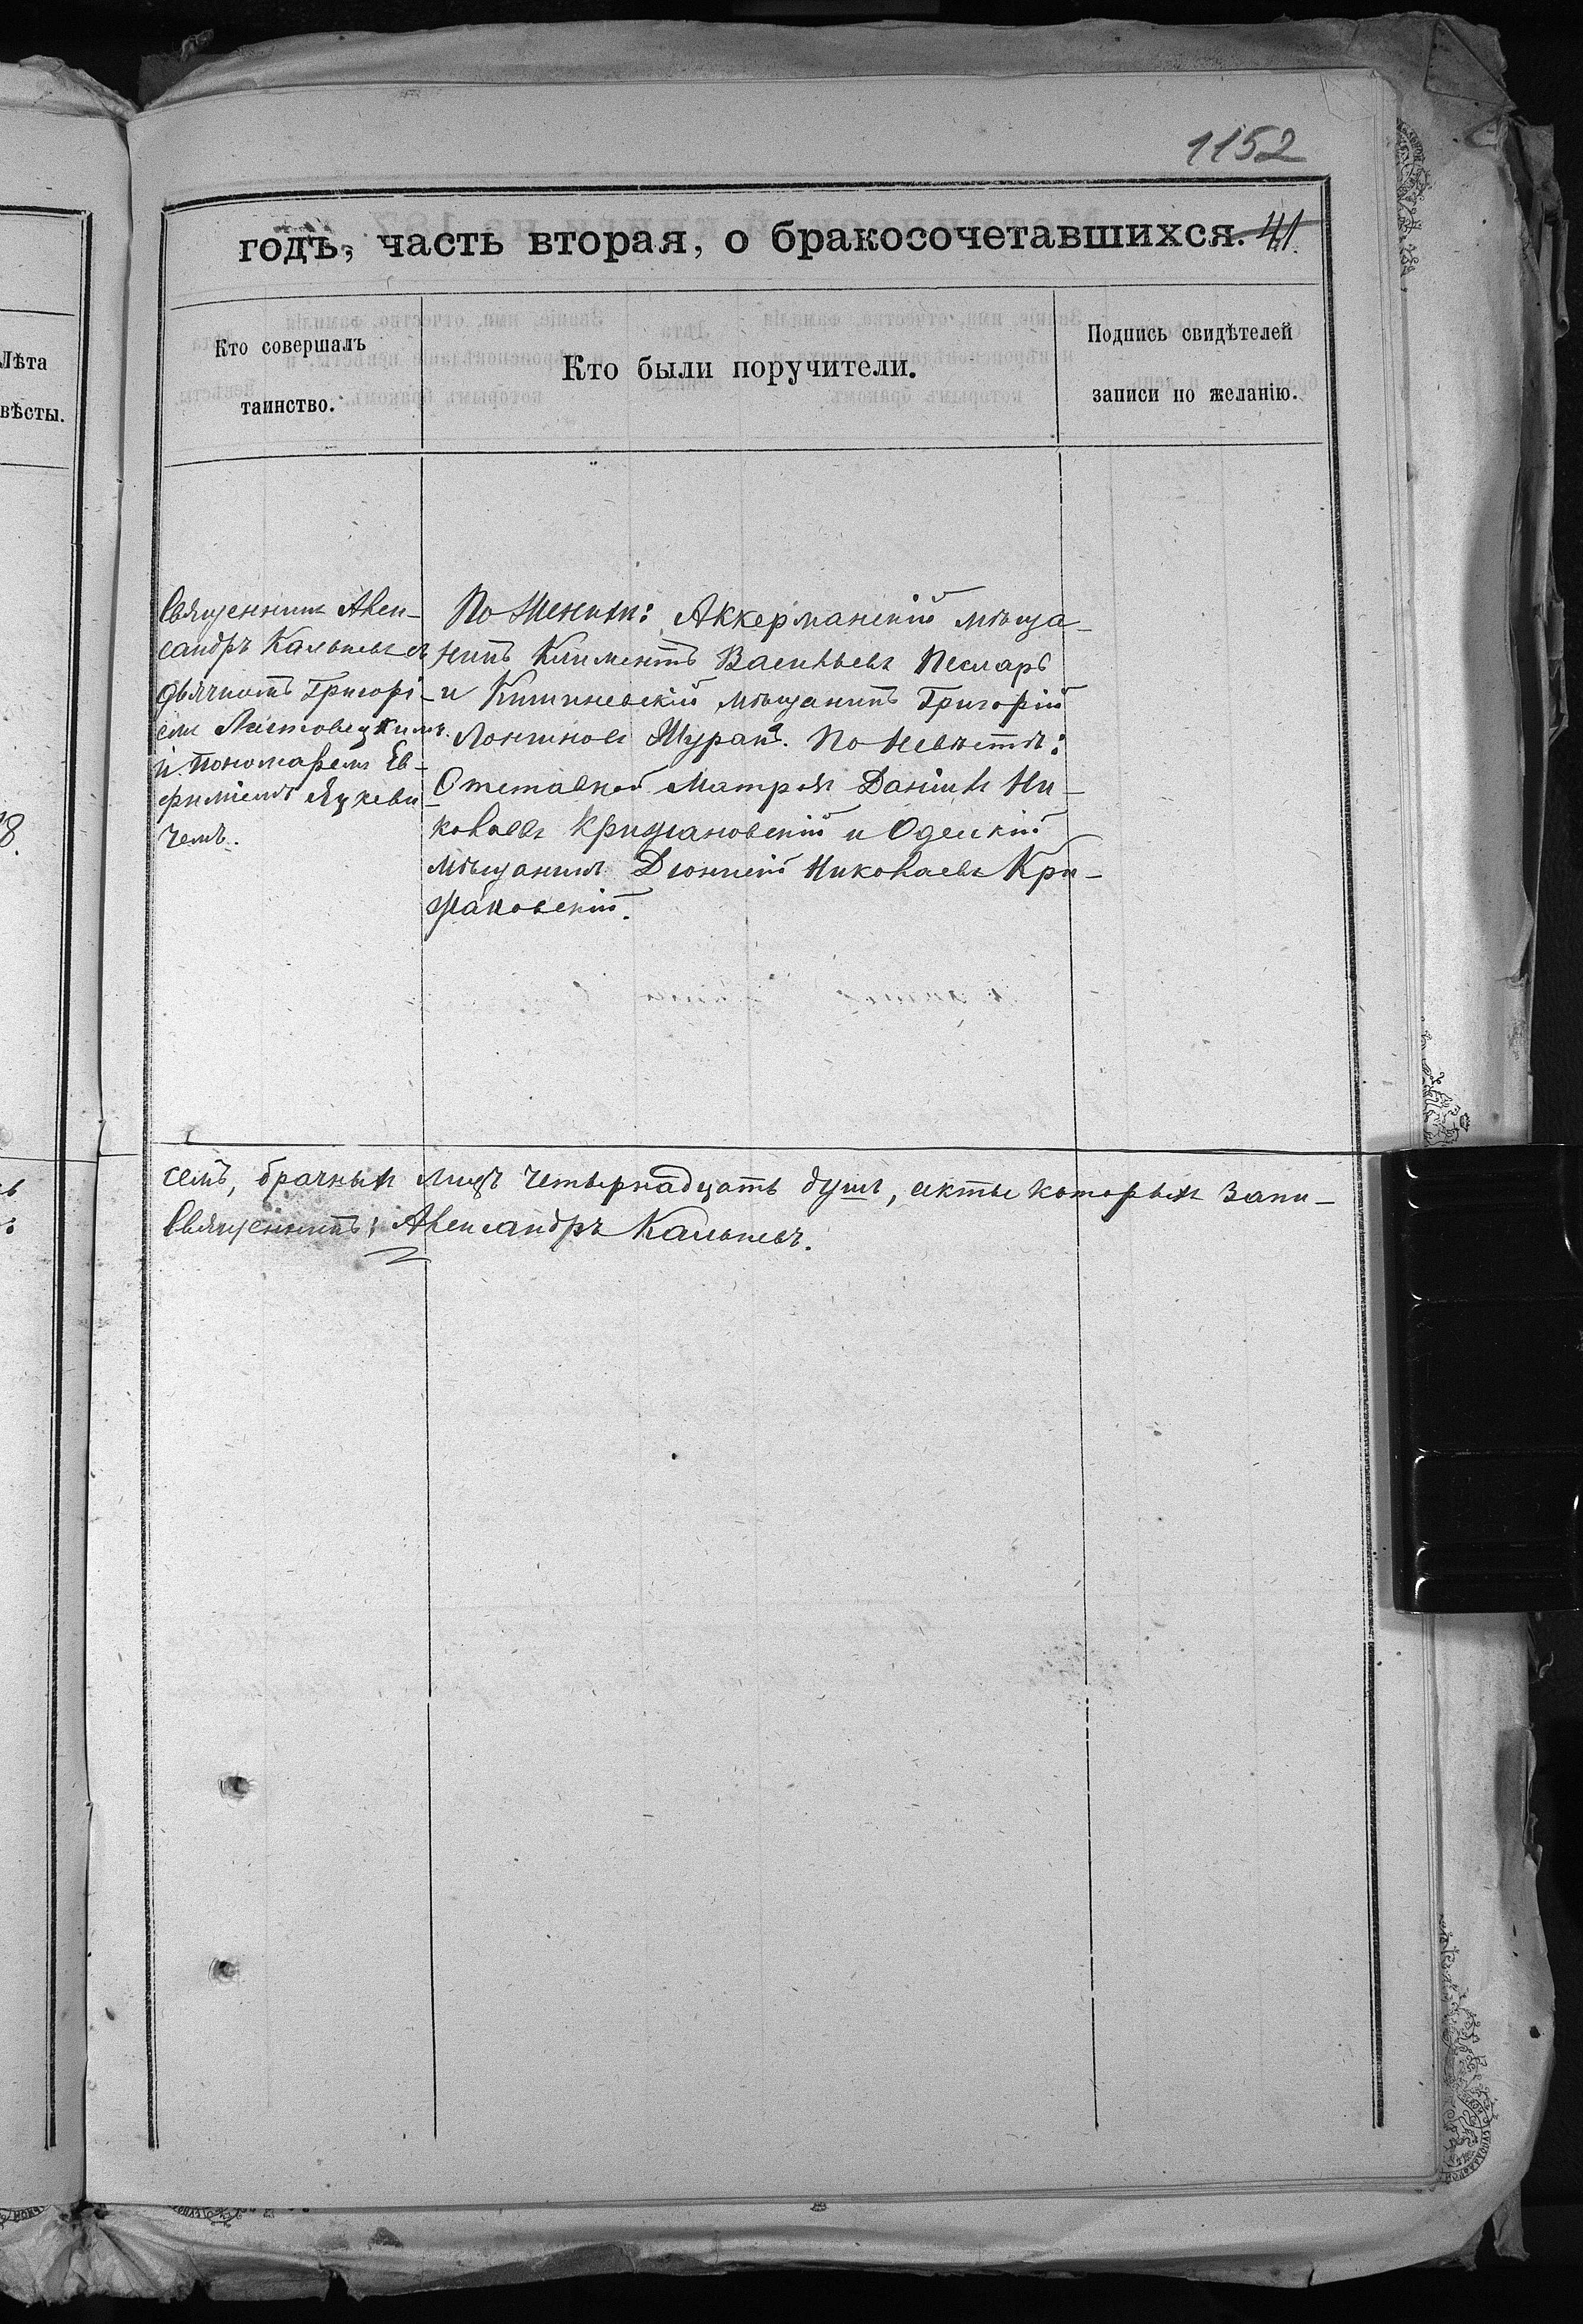 1152
годъ, часть вторая, о бракосочетавшихся. 41.
Лѣта
вѣсты.
Кто совершалъ
таинство.
Кто были поручители.
Подпись свидѣтелей
записи по желанію.
Священник Алек-
сандръ Кальневъ съ
дьячкомъ Григорі-
ем Листовецкимъ
и пономарем Ев-
фиміемъ Яцкеви
чемъ.
По женихѣ: Аккерманскій мѣща-
нинъ Климентъ Васильевъ Песларъ
и Кишиневскій мѣщанинъ Григорій
Лонгиновъ Шуранъ. По невѣстѣ:
Отставной Матрозъ Даніилъ Ни-
колаевъ Крижановскій и Одескій
мѣщанинъ Діонисій Николаевъ Кри-
жановскій.
8.
семъ, брачныхъ лицъ четырнадцать душъ, акты которыхъ запи-
Священникъ: Александръ Кальневъ.